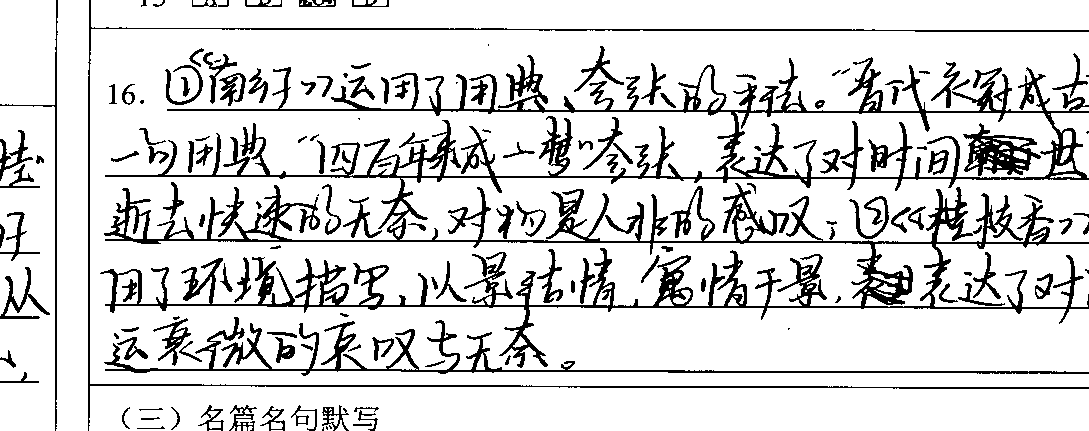 16. ①《南乡子》运用了用典、夸张的手法。“晋代衣冠成古
一句用典,“四百年来成一梦”夸张,表达了对时间 世
逝去快速的无奈,对物是人非的感叹;②《桂枝香》
用了环境描写,以景结情,寓情于景, 表达了对
运衰微的哀叹与无奈。
(三)名篇名句默写
从